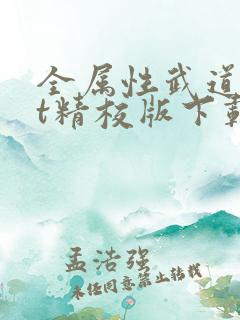 全属性武道
t精校版下载
孟浩强
未经同意禁止转载